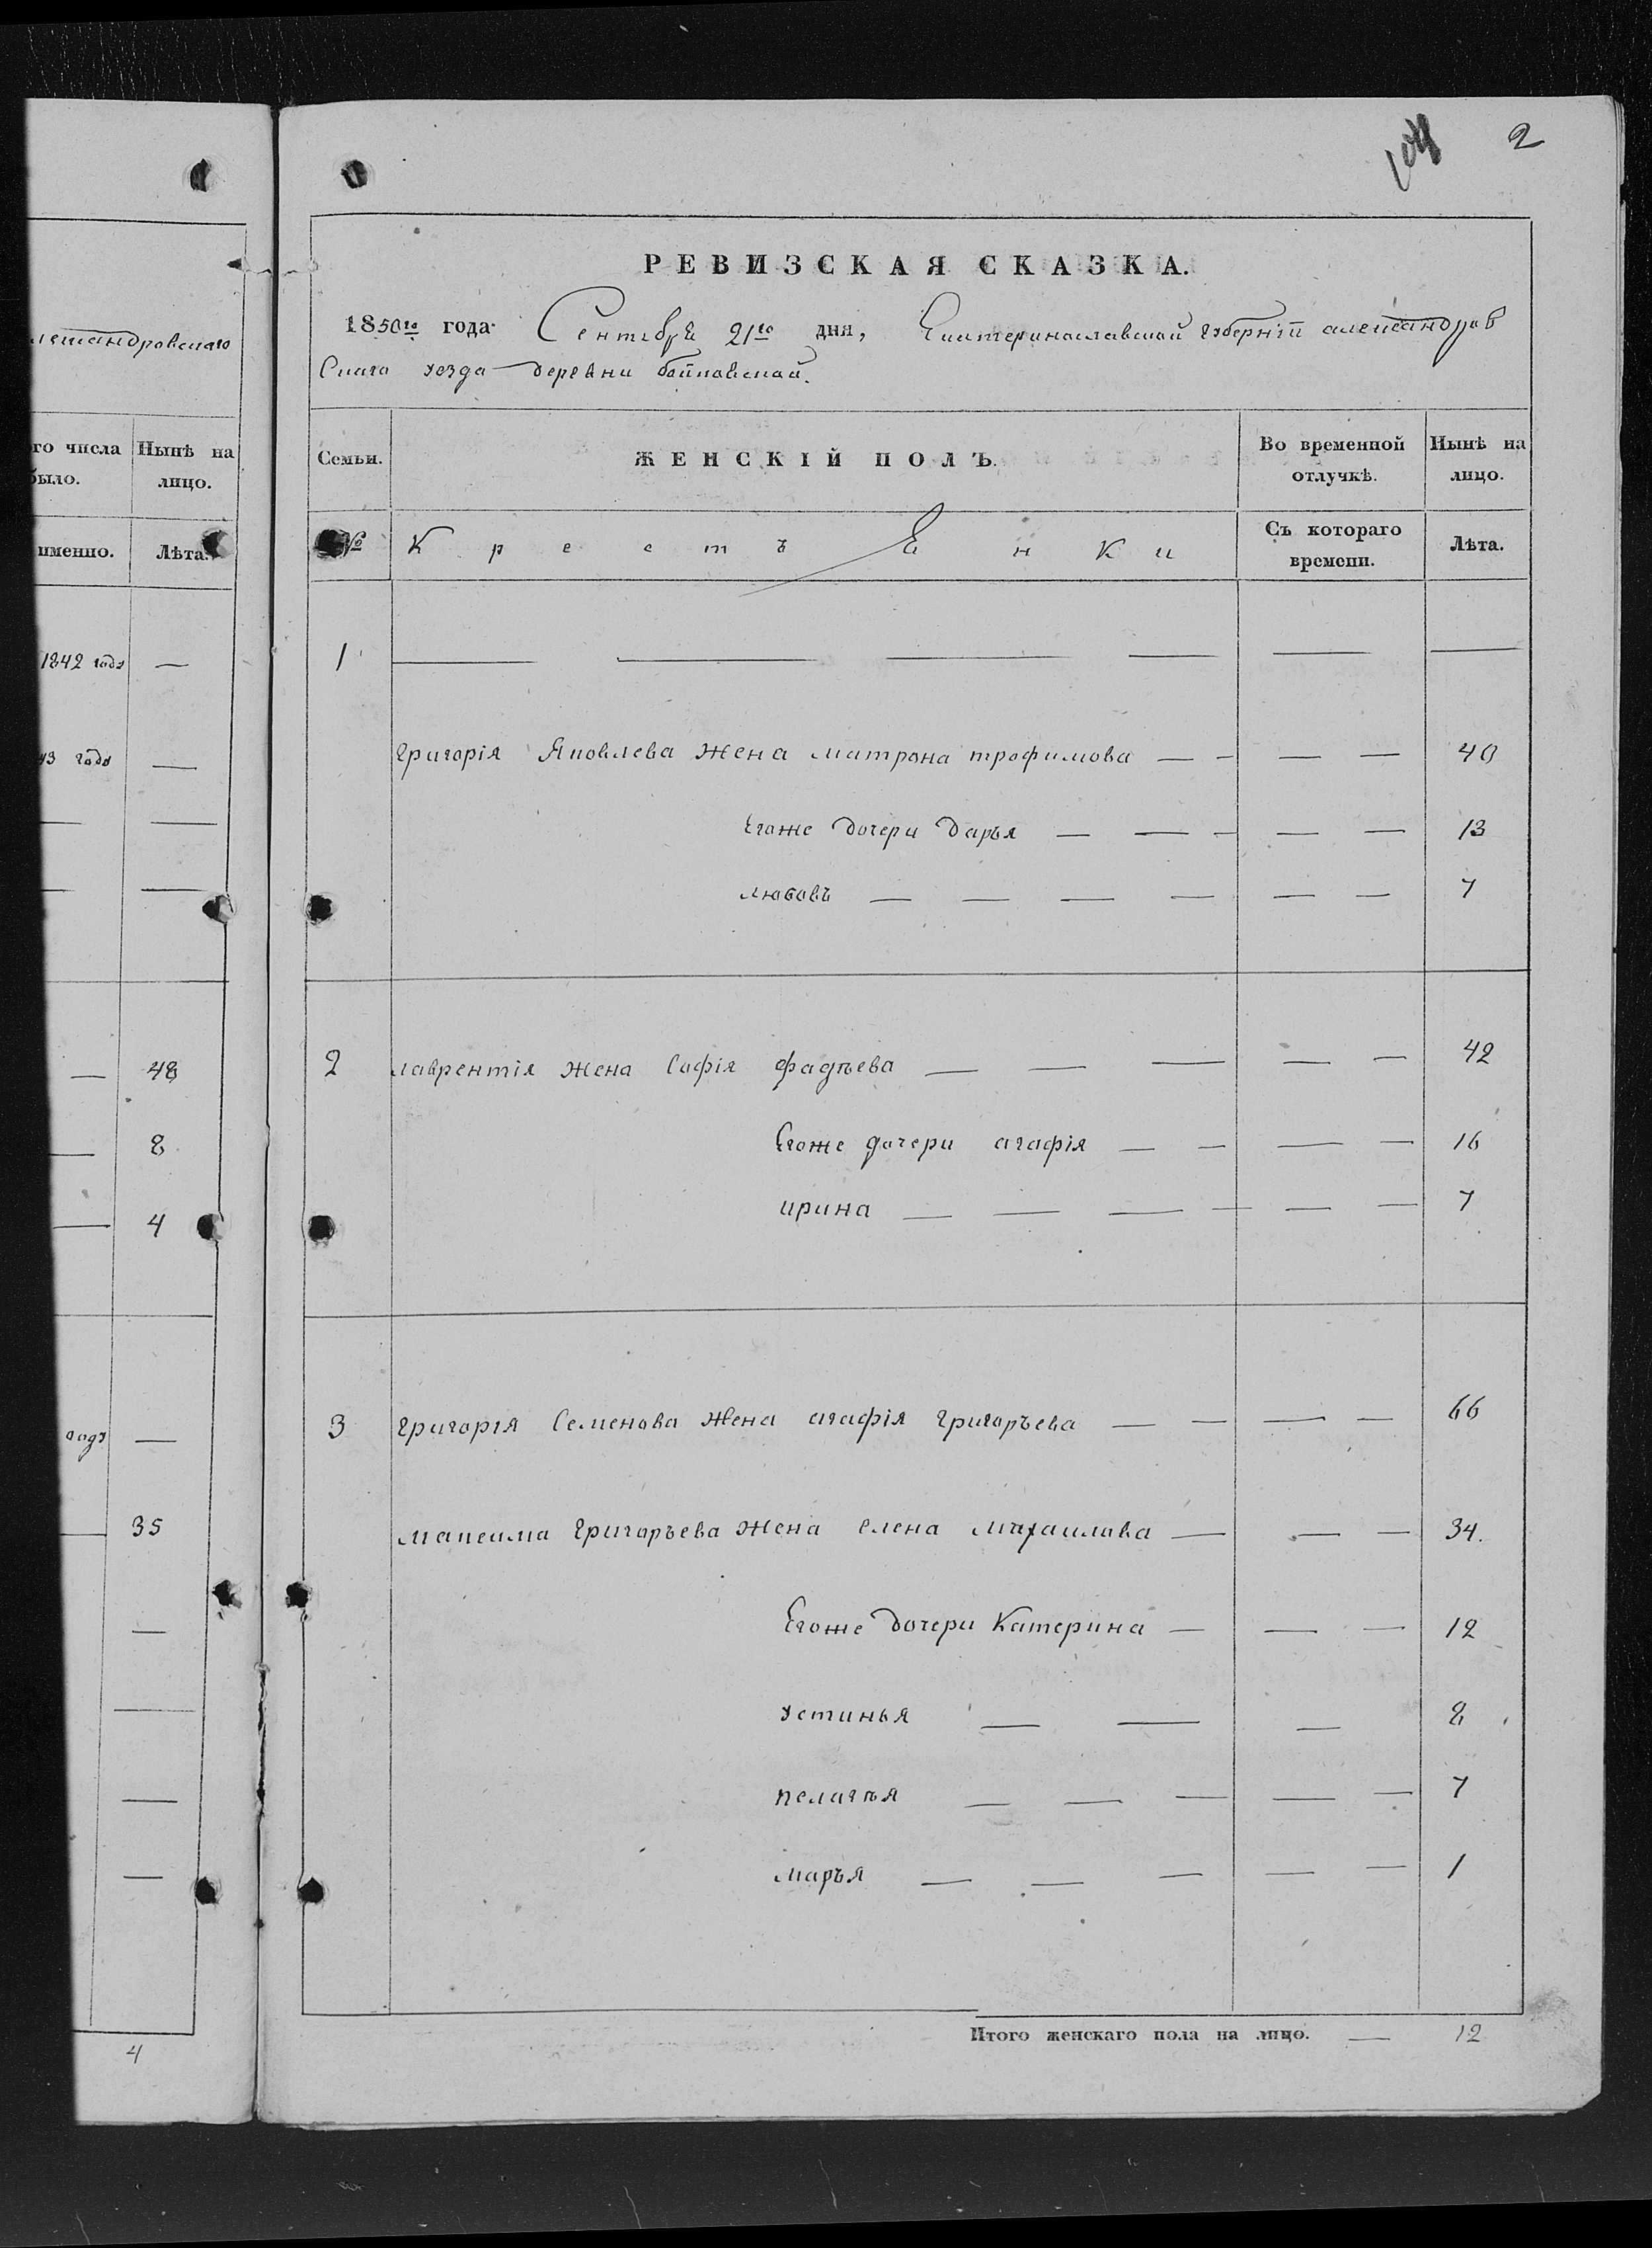 2
РЕВИЗСКАЯ СКАЗКА.
1850го года Сентября 21го дня, Екатеринославской губернии александров
Скаго уезда деревни бойковской.
лександровскаго
го числа было. Нынѣ на лицо.
именно. Лѣта.
1842 года —
43 года —
— 48
— 8
— 4
года —
— 35
4
Семьи. ЖЕНСКІЙ ПОЛЪ. Во временной отлучкѣ. Нынѣ на лицо.
№ Крестъенки Съ котораго времени. Лѣта.
1 — — — — — —
Григорія Яковлева жена матрона трофимова — — — — 40
Егоже дочери дарья — — — — — 13
любовъ — — — — — — 7
2 лаврентія жена Софія фадѣева — — — — — 42
Егоже дочери агафія — — — — 16
ирина — — — — — — 7
3 григорія Семенова жена агафія григоръева — — — — 66
максима Григоръева жена елена михаилова — — — 34.
Егоже дочери Катерина — — — 12
устинья — — — 8
пелагѣя — — — — — 7
маръя — — — — — 1
Итого женскаго пола на лицо. — 12